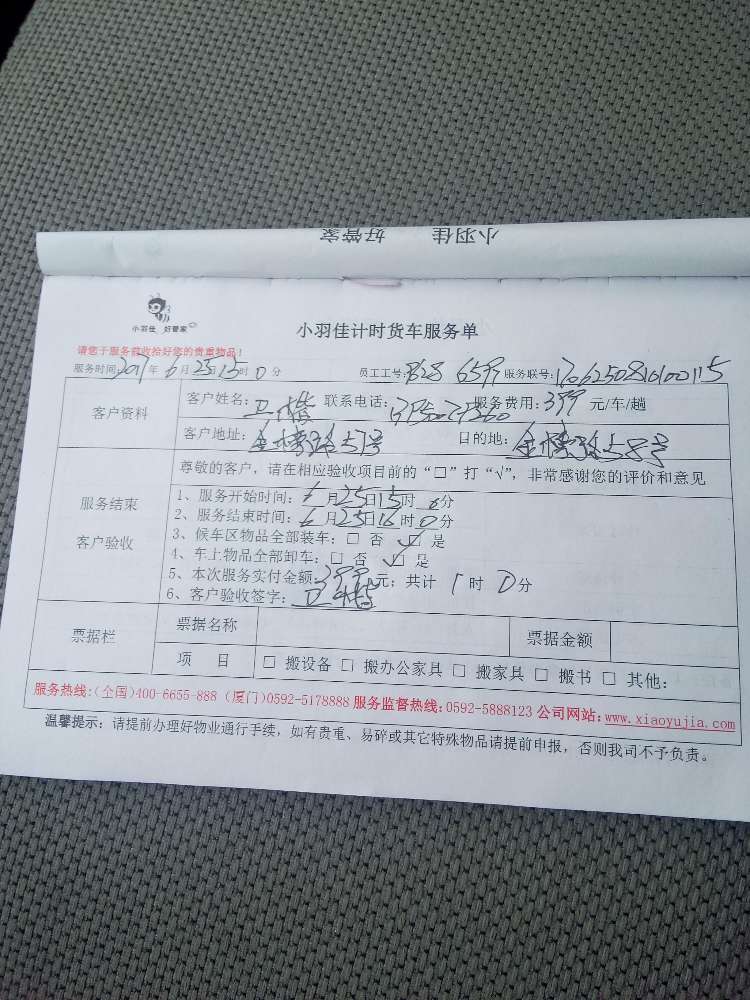 小羽佳 好管家
小羽佳 好管家
小羽佳计时货车服务单
请您于服务前收拾好您的贵重物品！
服务时间: 2017年6月25日15时0分 员工工号: 服务联号: 1706250810100115
客户资料
客户姓名: 联系电话: 服务费用: 399 元/车/趟
客户地址: 目的地:
服务结束
客户验收
尊敬的客户，请在相应验收项目前的“□”打“√”，非常感谢您的评价和意见
1、服务开始时间: 6月25日15时0分
2、服务结束时间: 6月25日16时0分
3、候车区物品全部装车: □ 否 ☑ 是
4、车上物品全部卸车: □ 否 ☑ 是
5、本次服务实付金额: 399元; 共计 1时0分
6、客户验收签字:
票据栏
票据名称 票据金额
项 目 □ 搬设备 □ 搬办公家具 □ 搬家具 □ 搬书 □ 其他:
服务热线:(全国)400-6655-888 (厦门)0592-5178888 服务监督热线:0592-5888123 公司网站: www.xiaoyujia.com
温馨提示: 请提前办理好物业通行手续，如有贵重、易碎或其它特殊物品请提前申报，否则我司不予负责。